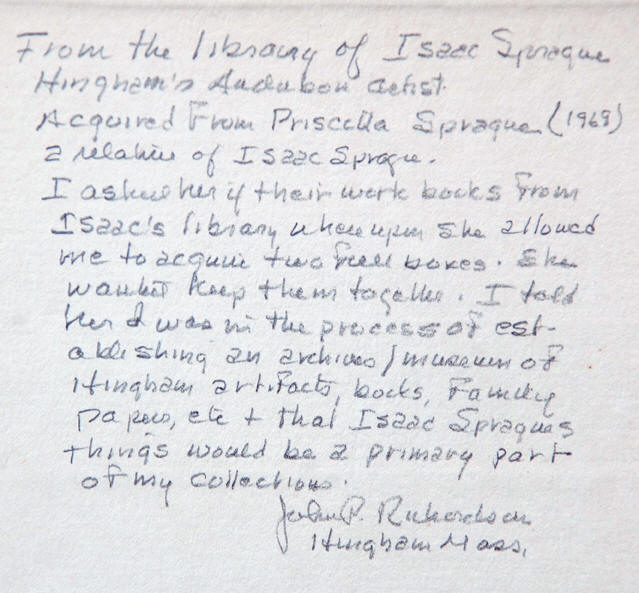 From the library of Isaac Sprague
Hingham's Audubon artist.
Acquired From Priscilla Sprague (1969)
a relative of Isaac Sprague.
I asked her if their work books From
Isaac's library whereupon she allowed
me to acquire two full boxes. She
wanted keep them together. I told
her I was in the process of est-
ablishing an archives/museum of
Hingham artifacts, books, Family
papers, etc + that Isaac Spragues
things would be a primary part
of my collections.
John P. Richardson
Hingham Mass.